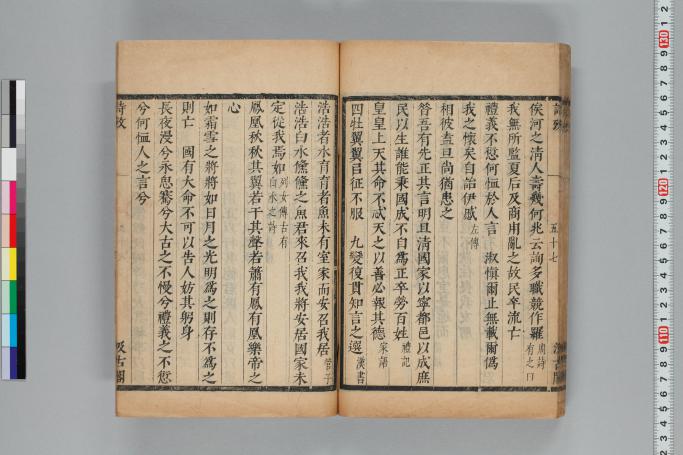 俟河之清人壽幾何兆云詢多職競作羅 周詩有之曰
我無所監夏后及商用亂之故民卒流亡
禮義不愆何恤於人言 淑慎爾止無載爾僞
我之懷矣自詒伊慼 左傳
相彼盍旦尚猶患之
昔吾有先正其言明且清國家以寧都邑以成庶
民以生誰能秉國成不自爲正卒勞百姓 禮記
皇皇上天其命不忒天之以善必報其德 家語
四牡翼翼以征不服 九變復貫知言之選 漢書
五十七
浩浩者水育育者魚未有室家而安召我居 管子
浩浩白水儵儵之魚君來召我我將安居國家未
定從我焉如 列女傳古有白水之詩
鳳凰秋秋其翼若干其聲若簫有鳳有凰樂帝之
心
如霜雪之將將如日月之光明爲之則存不爲之
則亡 國有大命不可以告人妨其躬身
長夜漫兮永思騫兮大古之不慢兮禮義之不愆
兮何恤人之言兮
詩攷
汲古閣